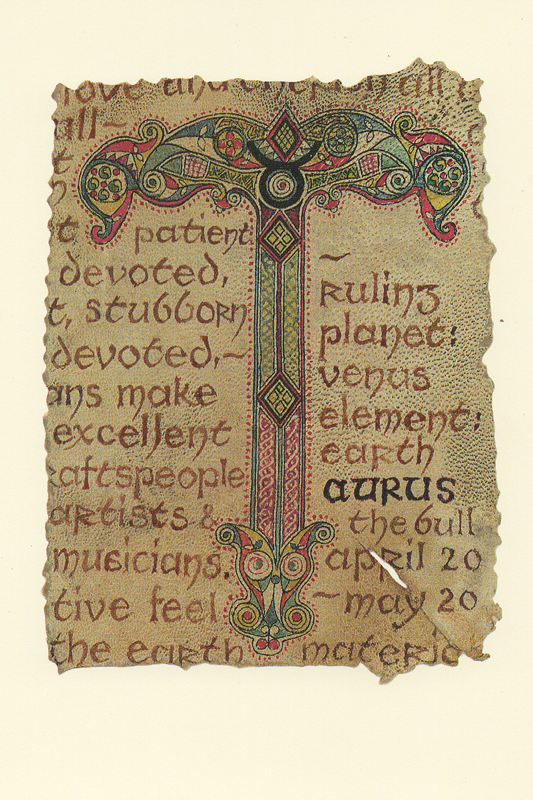 love and all
all~
t patient
devoted,
t, stubborn
devoted,~
ans make
excellent
raftspeople
artists &
musicians.
tive feel
the earth
~
ruling
planet:
venus
element:
earth
TAURUS
the bull
april 20
~may 20
materi